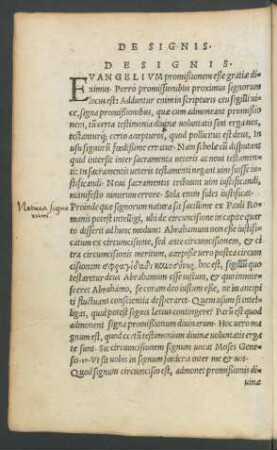 DE SIGNIS.
DE SIGNIS.
EVANGELIVM promissionem esse gratiæ di-
ximus. Porrò promissionibus proximus signorum
locus est: Adduntur enim in scripturis ceu sigilli ui-
ce, signa promissionibus, quæ cum admoneant promissio-
num, tũ certa testimonia diuinæ uoluntatis sint erga nos,
testanturq́; certo accepturos, quod pollicitus est deus. In
usu signorũ fœdissime erratur. Nam scholæ cũ disputant
quid intersit inter sacramenta ueteris ac noui testamen-
ti: In sacramentis ueteris testamenti negant uim fuisse iu-
stificandi. Noui sacramentis tribuunt uim iustificandi,
manifesto nimirum errore. Sola enim fides iustificat.
Natura signo
rum.
Proinde quæ signorum natura sit facillime ex Pauli Ro-
manis potest intelligi, ubi de circumcisione in capite quar-
to disserit ad hunc modum: Abrahamum non esse iustifi-
catum ex circumcisione, sed ante circumcisionem, & ci
tra circumcisionis meritum, accepisse uero postea circum
cisionem σφραγῖδα δικαιοσύνης, hoc est, sigillũ quo
testaretur deus Abrahamum esse iustum, & quo
seret Abrahamus, se coram deo iustum esse, ne in ancipi
ti fluctuans conscientia desperaret. Quem usum si intel-
ligas, quid potest signis lætius contingere? Parũ est quod
admonent signa promissionum diuinarum. Hoc uero ma
gnum est, quod certũ testimonium diuinæ uoluntatis erga
te sunt. Sic circumcisionem signum uocat Moses Gene-
sis Vt sit uobis in signum fœdera inter me & uos.
Quod signum circumcisio est, admonet promissionis di-
uinæ